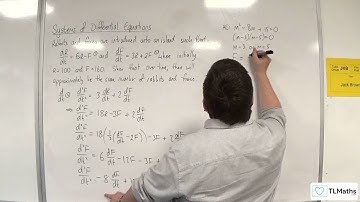 Systems of Differential Equations
Rabbits and foxes are introduced onto an island such that
dR/dt = 6R - F ① and dF/dt = 3R + 2F ② where initially
R = 100 and F = 160. Show that over time, there will
approximately be the same number of rabbits and foxes.
d/dt ②
⇒ d²F/dt² = 3 dR/dt + 2 dF/dt
⇒ d²F/dt² = 18R - 3F + 2 dF/dt
⇒ d²F/dt² = 18(1/3(dF/dt - 2F)) - 3F + 2 dF
⇒ d²F/dt² = 6 dF/dt - 12F - 3F +
⇒ d²F/dt² = 8 dF/dt
AE: m² - 8m + 15 = 0
(m - 3)(m - 5) = 0
m = 3 or m = 5
F =
TLMaths
Jack Brown
TLMaths